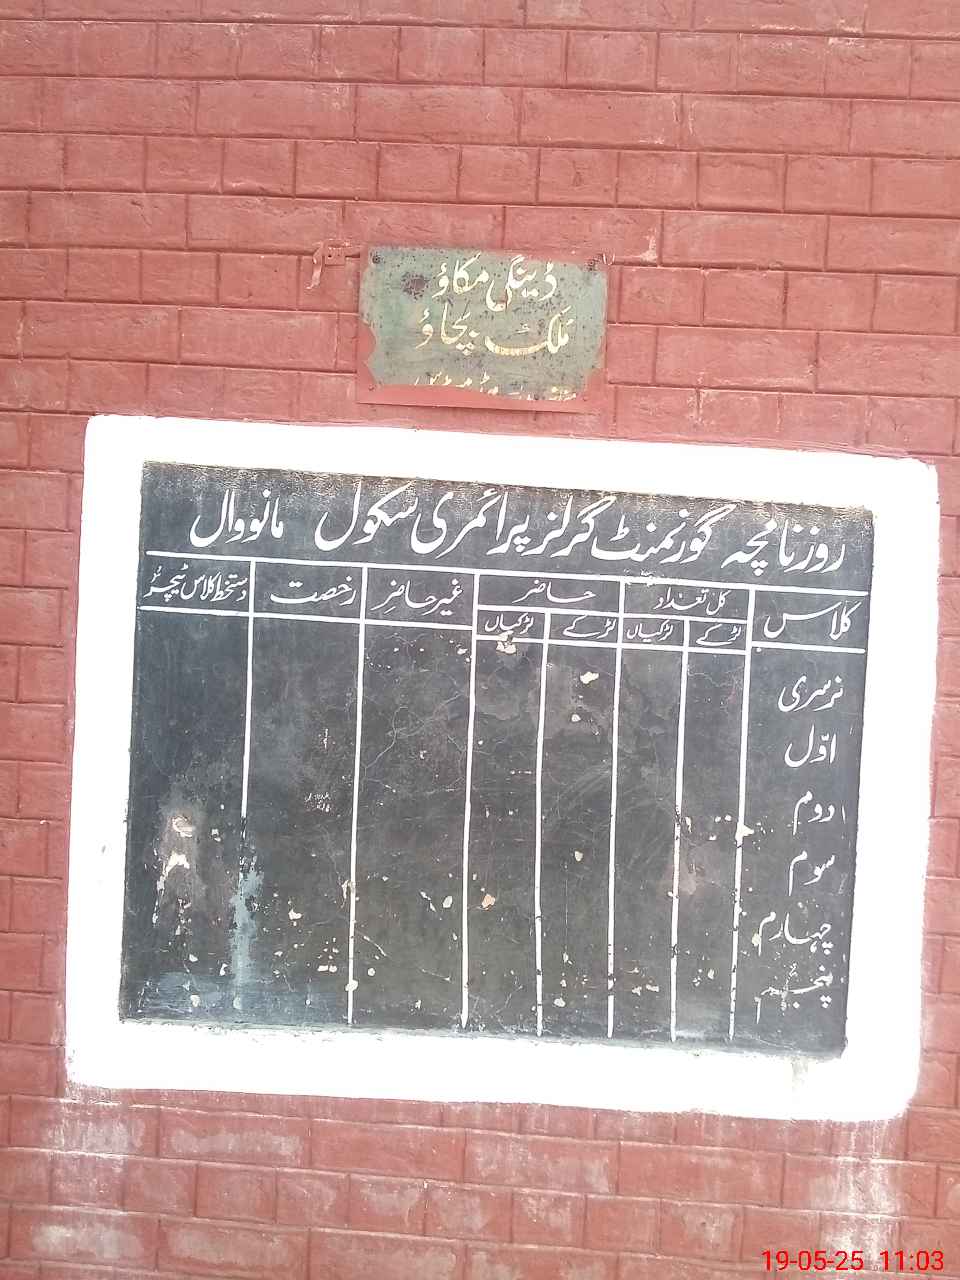 ڈینگی مکاؤ
ملک بچاؤ
روزنامچہ گورنمنٹ گرلز پرائمری سکول مانووال
کلاس کل تعداد حاضر غیر حاضر رخصت دستخط کلاس ٹیچر
لڑکے لڑکیاں لڑکے لڑکیاں
نرسری
اوّل
دوم
سوم
چہارم
پنجم
19-05-25 11:03